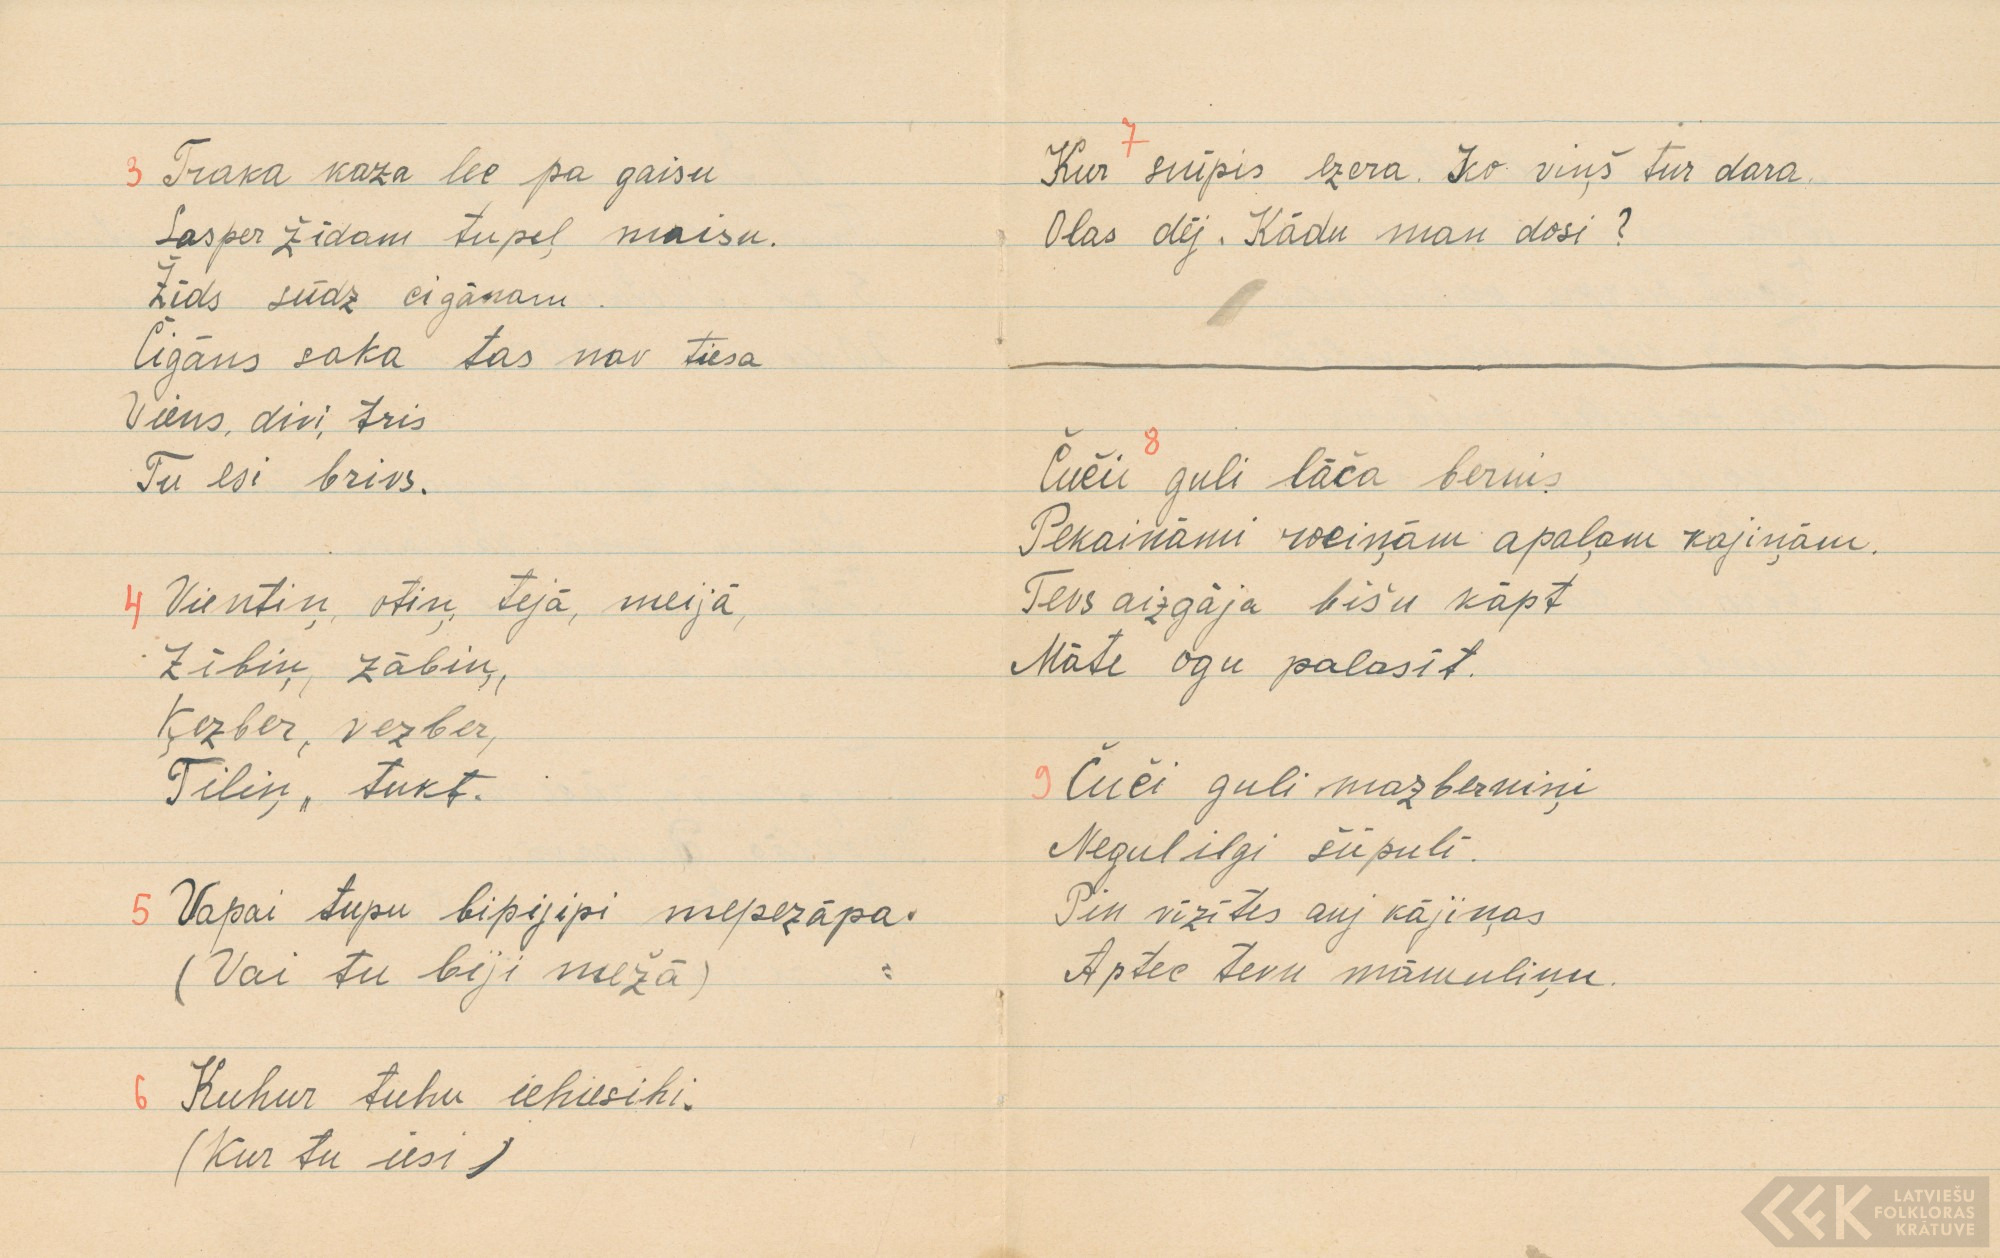 3 Traka kaza lec pa gaisu
Sasper Žīdam tupeļ maisu.
Žīds sūdz cigānam.
Cigāns saka tas nav tiesa
Viens, divi, tris
Tu esi brivs.
4 Vientiņ, otiņ, tejā, meijā,
Zībiņ, zābiņ,
Ķezber, vezber,
Tiliņ,, tukt.
5 Vapai tupu bipijipi mepezāpa.
(Vai tu biji mežā)
6 Kuhur tuhu iehiesihi.
(Kur tu iesi)
7
Kur snīpis ezera. Ko viņš tur dara.
Olas dēj. Kādu man dosi?
8
Čuči guli lāča bernis
Pekaināmi rociņām apaļam kajiņām.
Tevs aizgāja bišu kāpt
Māte ogu palasīt.
9 Čuči guli mazberniņi
Negul ilgi šūpulī.
Pin vīzītes auj kājiņas
Aptec tevu māmuliņu.
LATVIEŠU
FOLKLORAS
KRĀTUVE